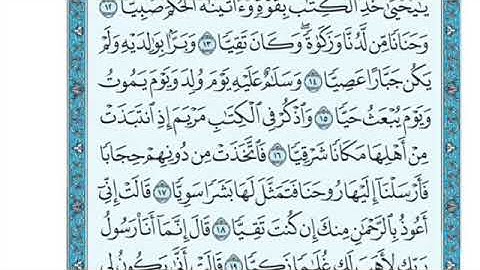 يَـٰيَحۡيَىٰ خُذِ ٱلۡكِتَـٰبَ بِقُوَّةٖۖ وَءَاتَيۡنَـٰهُ ٱلۡحُكۡمَ صَبِيّٗا ١٢
وَحَنَانٗا مِّن لَّدُنَّا وَزَكَوٰةٗۖ وَكَانَ تَقِيّٗا ١٣ وَبَرَّۢا بِوَٰلِدَيۡهِ وَلَمۡ
يَكُن جَبَّارًا عَصِيّٗا ١٤ وَسَلَـٰمٌ عَلَيۡهِ يَوۡمَ وُلِدَ وَيَوۡمَ يَمُوتُ
وَيَوۡمَ يُبۡعَثُ حَيّٗا ١٥ وَٱذۡكُرۡ فِي ٱلۡكِتَـٰبِ مَرۡيَمَ إِذِ ٱنتَبَذَتۡ
مِنۡ أَهۡلِهَا مَكَانٗا شَرۡقِيّٗا ١٦ فَٱتَّخَذَتۡ مِن دُونِهِمۡ حِجَابٗا
فَأَرۡسَلۡنَآ إِلَيۡهَا رُوحَنَا فَتَمَثَّلَ لَهَا بَشَرٗا سَوِيّٗا ١٧ قَالَتۡ إِنِّيٓ
أَعُوذُ بِٱلرَّحۡمَـٰنِ مِنكَ إِن كُنتَ تَقِيّٗا ١٨ قَالَ إِنَّمَآ أَنَا۠ رَسُولُ
رَبِّكِ لِأَهَبَ لَكِ غُلَـٰمٗا زَكِيّٗا ١٩ قَالَتۡ أَنَّىٰ يَكُونُ لِي